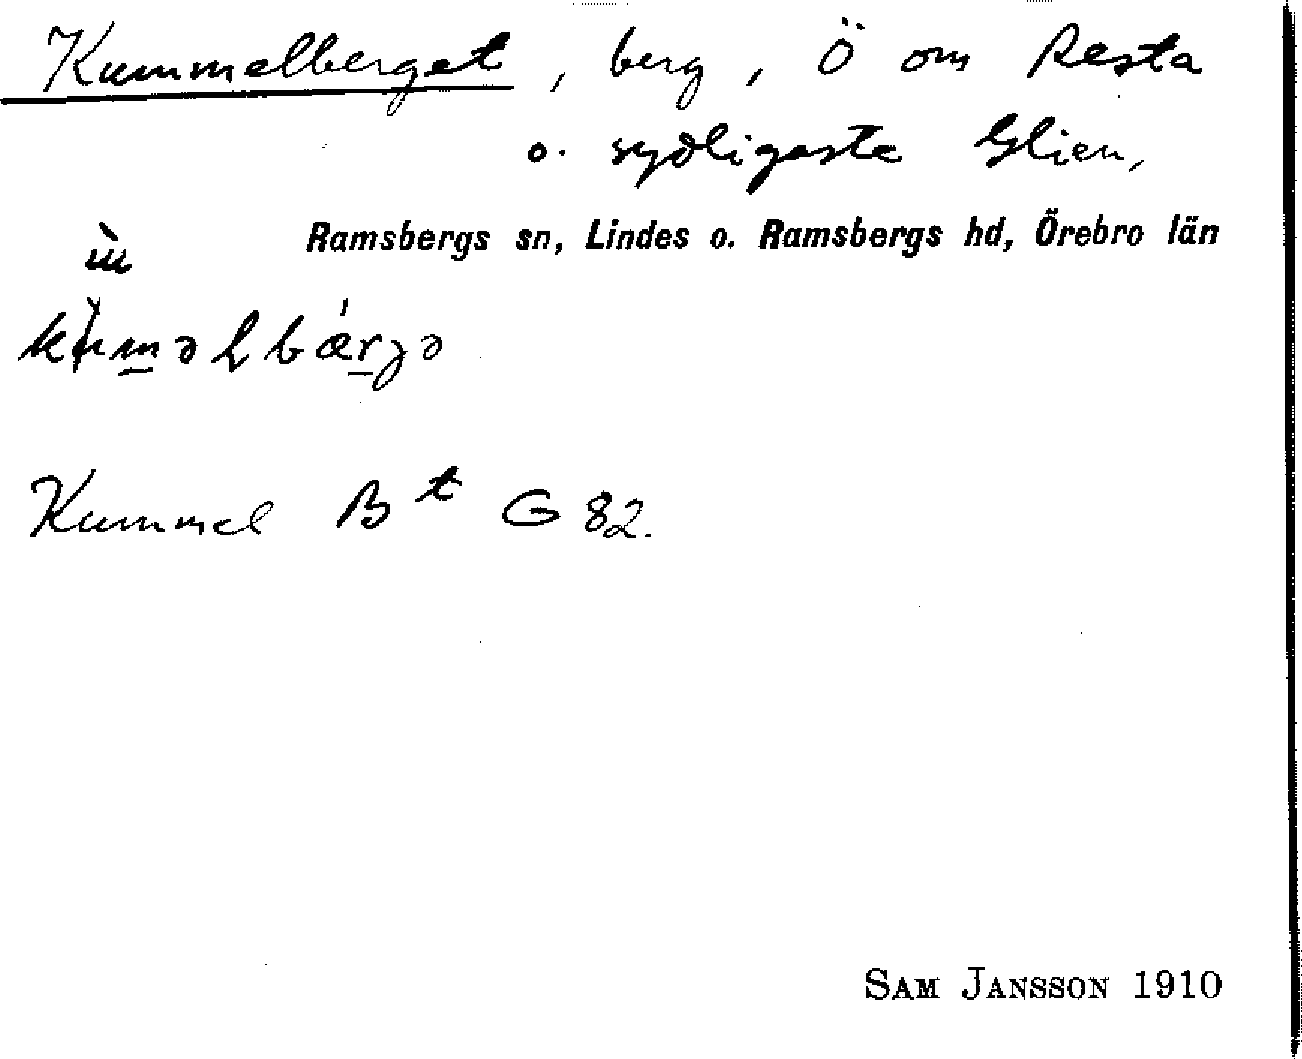 Kummelberget, berg, Ö om Resta
o. sydligaste Glien,
Ramsbergs sn, Lindes o. Ramsbergs hd, Örebro län
Kummel Bt G 82.
SAM JANSSON 1910